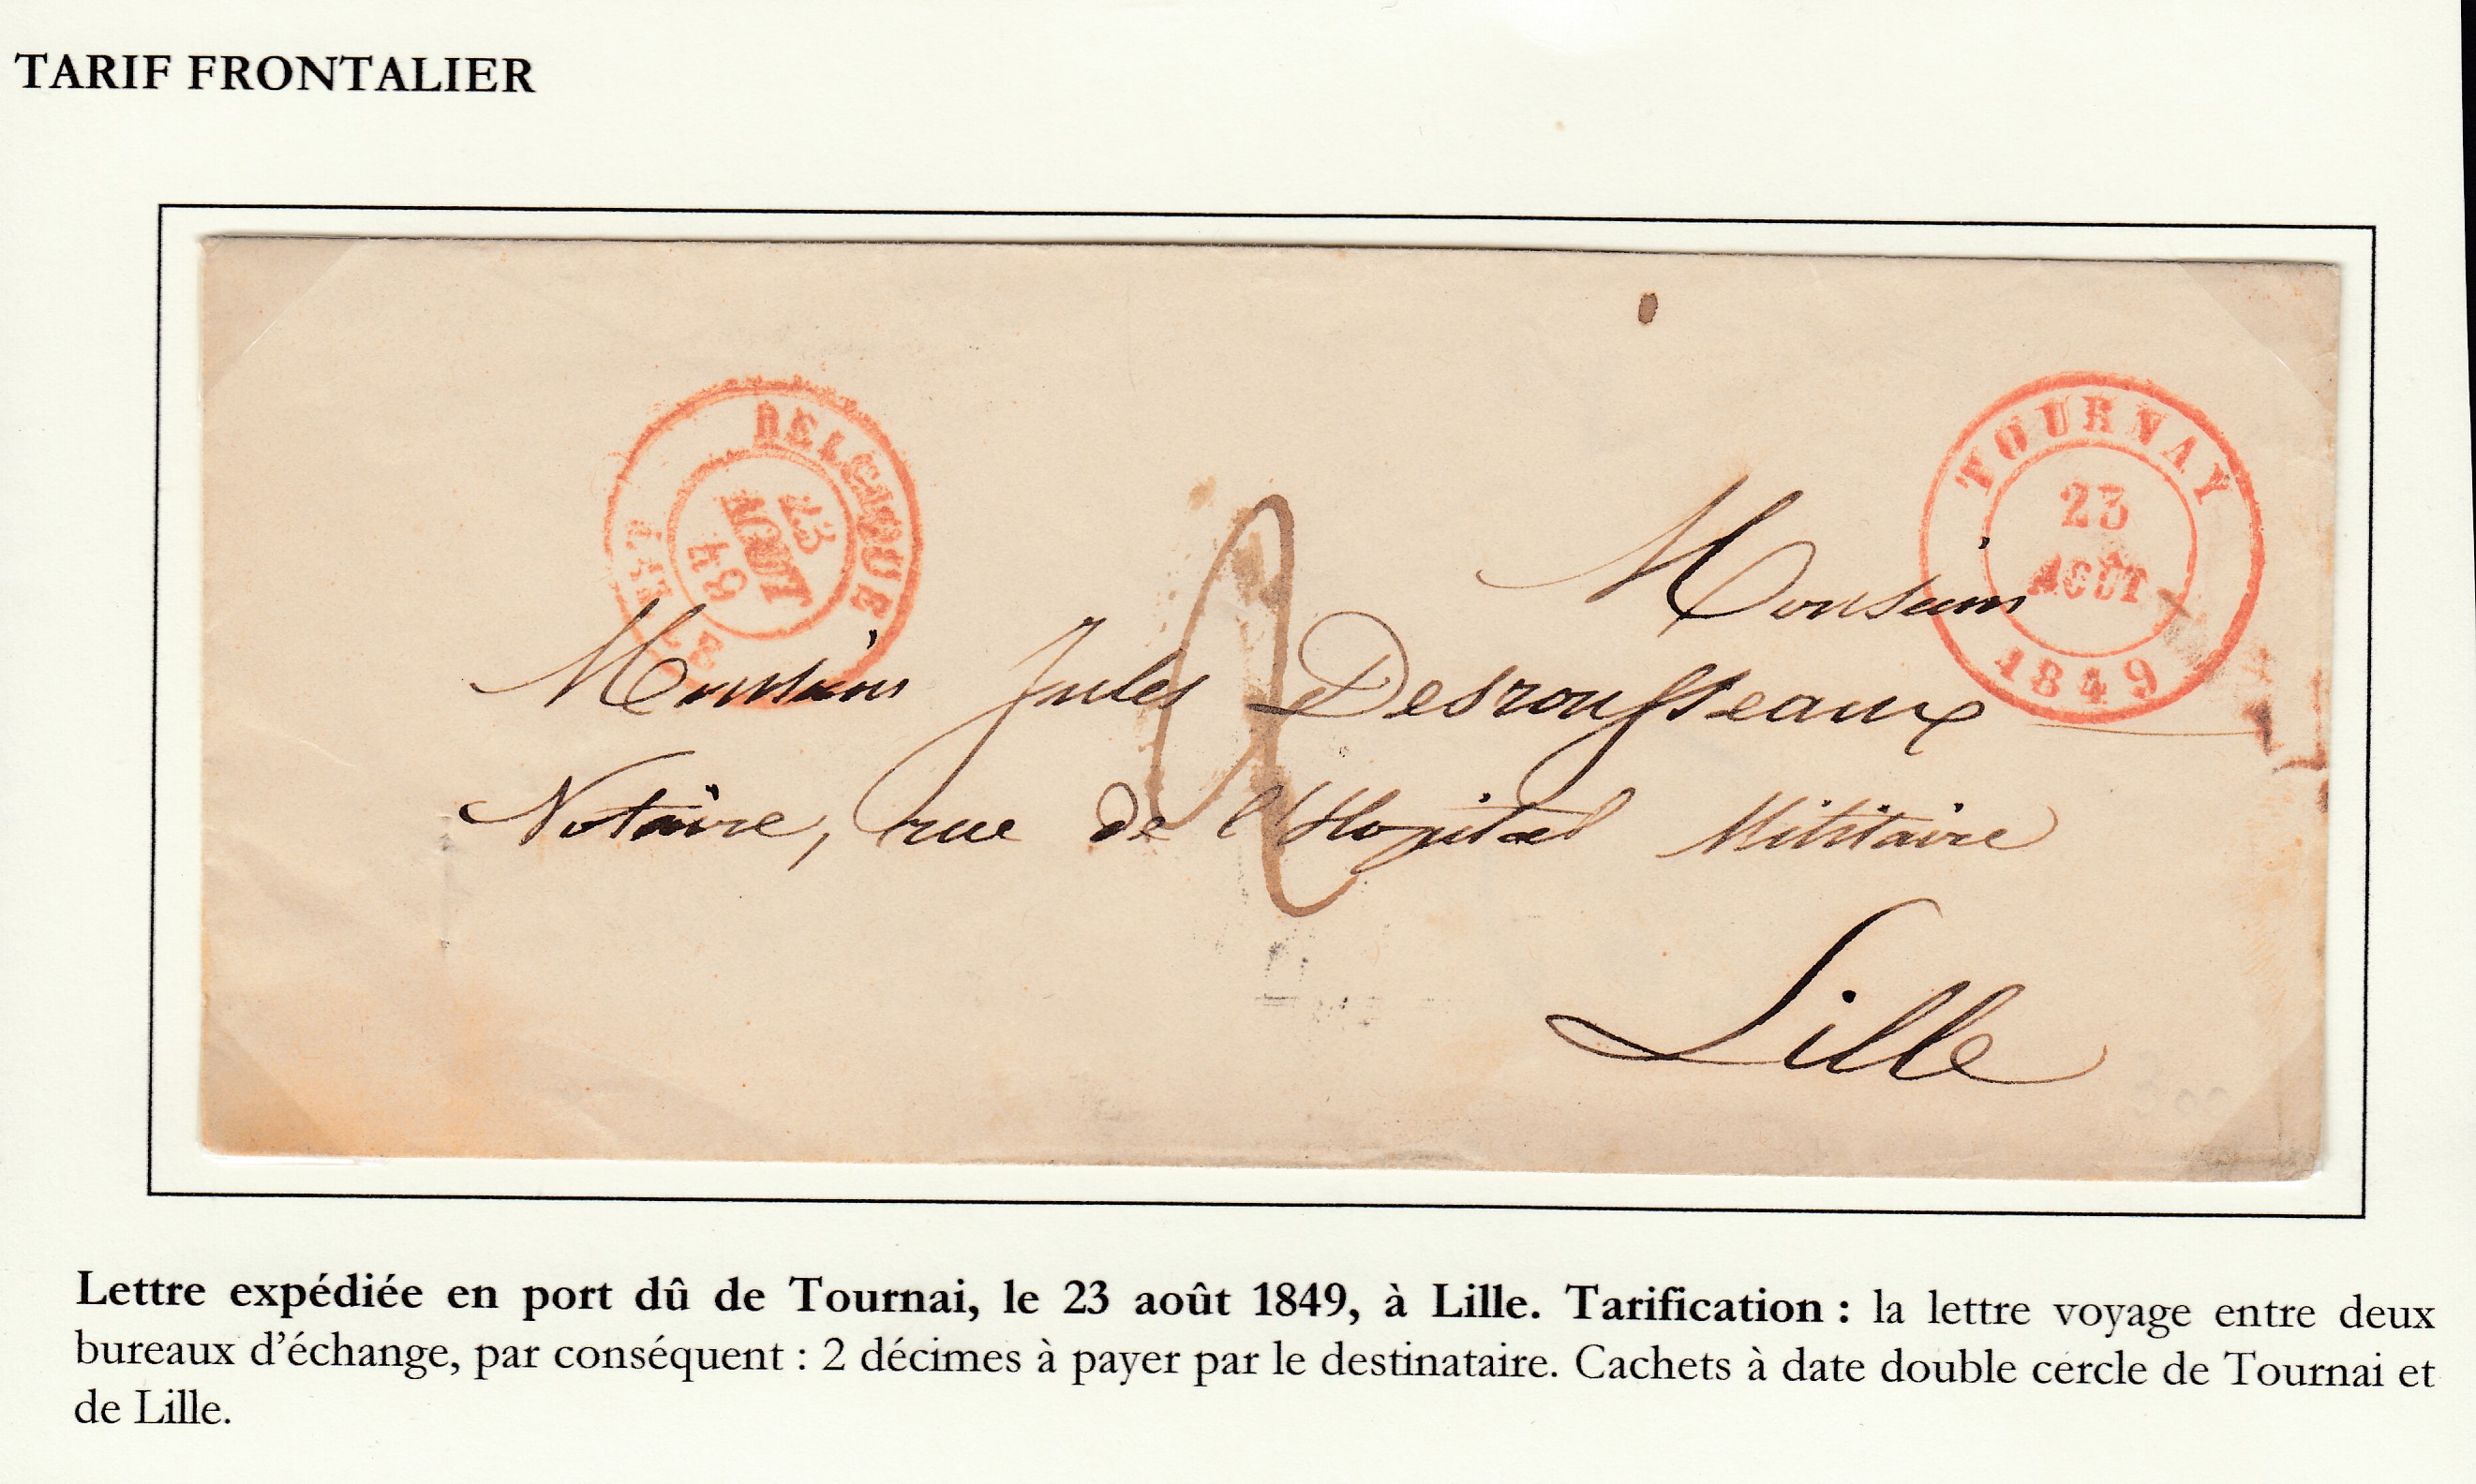 TARIF FRONTALIER
BELGIQUE
23
AOUT
49
TOURNAY
23
AOUT
1849
2
Monsieur
Monsieur Jules Desrousseaux
Notaire, rue de l'Hopital Militaire
Lille
Lettre expédiée en port dû de Tournai, le 23 août 1849, à Lille. Tarification : la lettre voyage entre deux
bureaux d'échange, par conséquent : 2 décimes à payer par le destinataire. Cachets à date double cercle de Tournai et
de Lille.